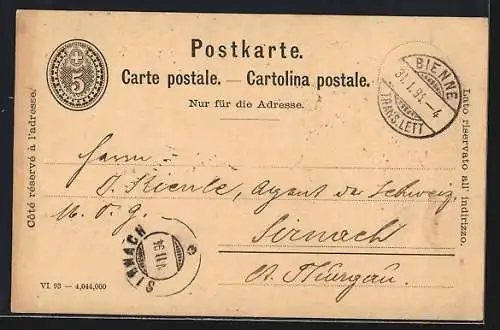 Postkarte.
Carte postale. — Cartolina postale.
Nur für die Adresse.
5
BIENNE
31.I.94.-4
TRANS.LETT
Côté réservé à l'adresse.
Lato riservato all' indirizzo.
Herrn
J. Kienle, Agent der Schweiz.
U. V. G.
Sirnach
Ct. Thurgau.
SIRNACH
VI 93 — 4,044,000